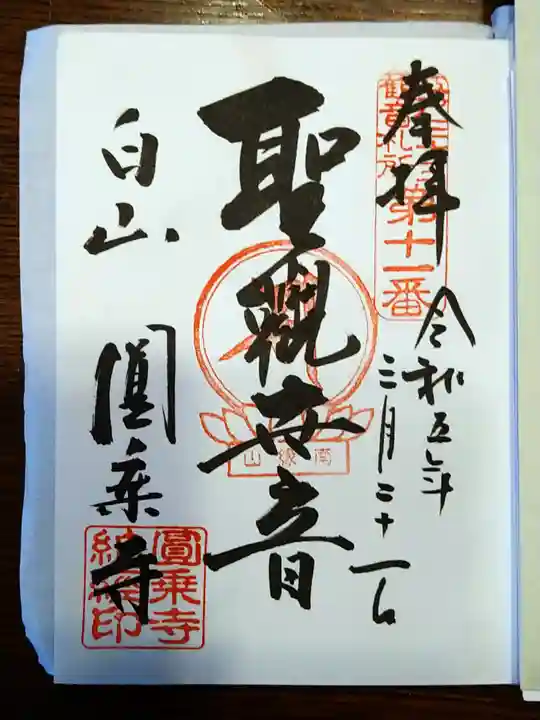 奉拝
観音札所
第十一番
令和五年
三月二十一日
聖観世音
南縁山
白山 圓乗寺
圓乗寺
納経印